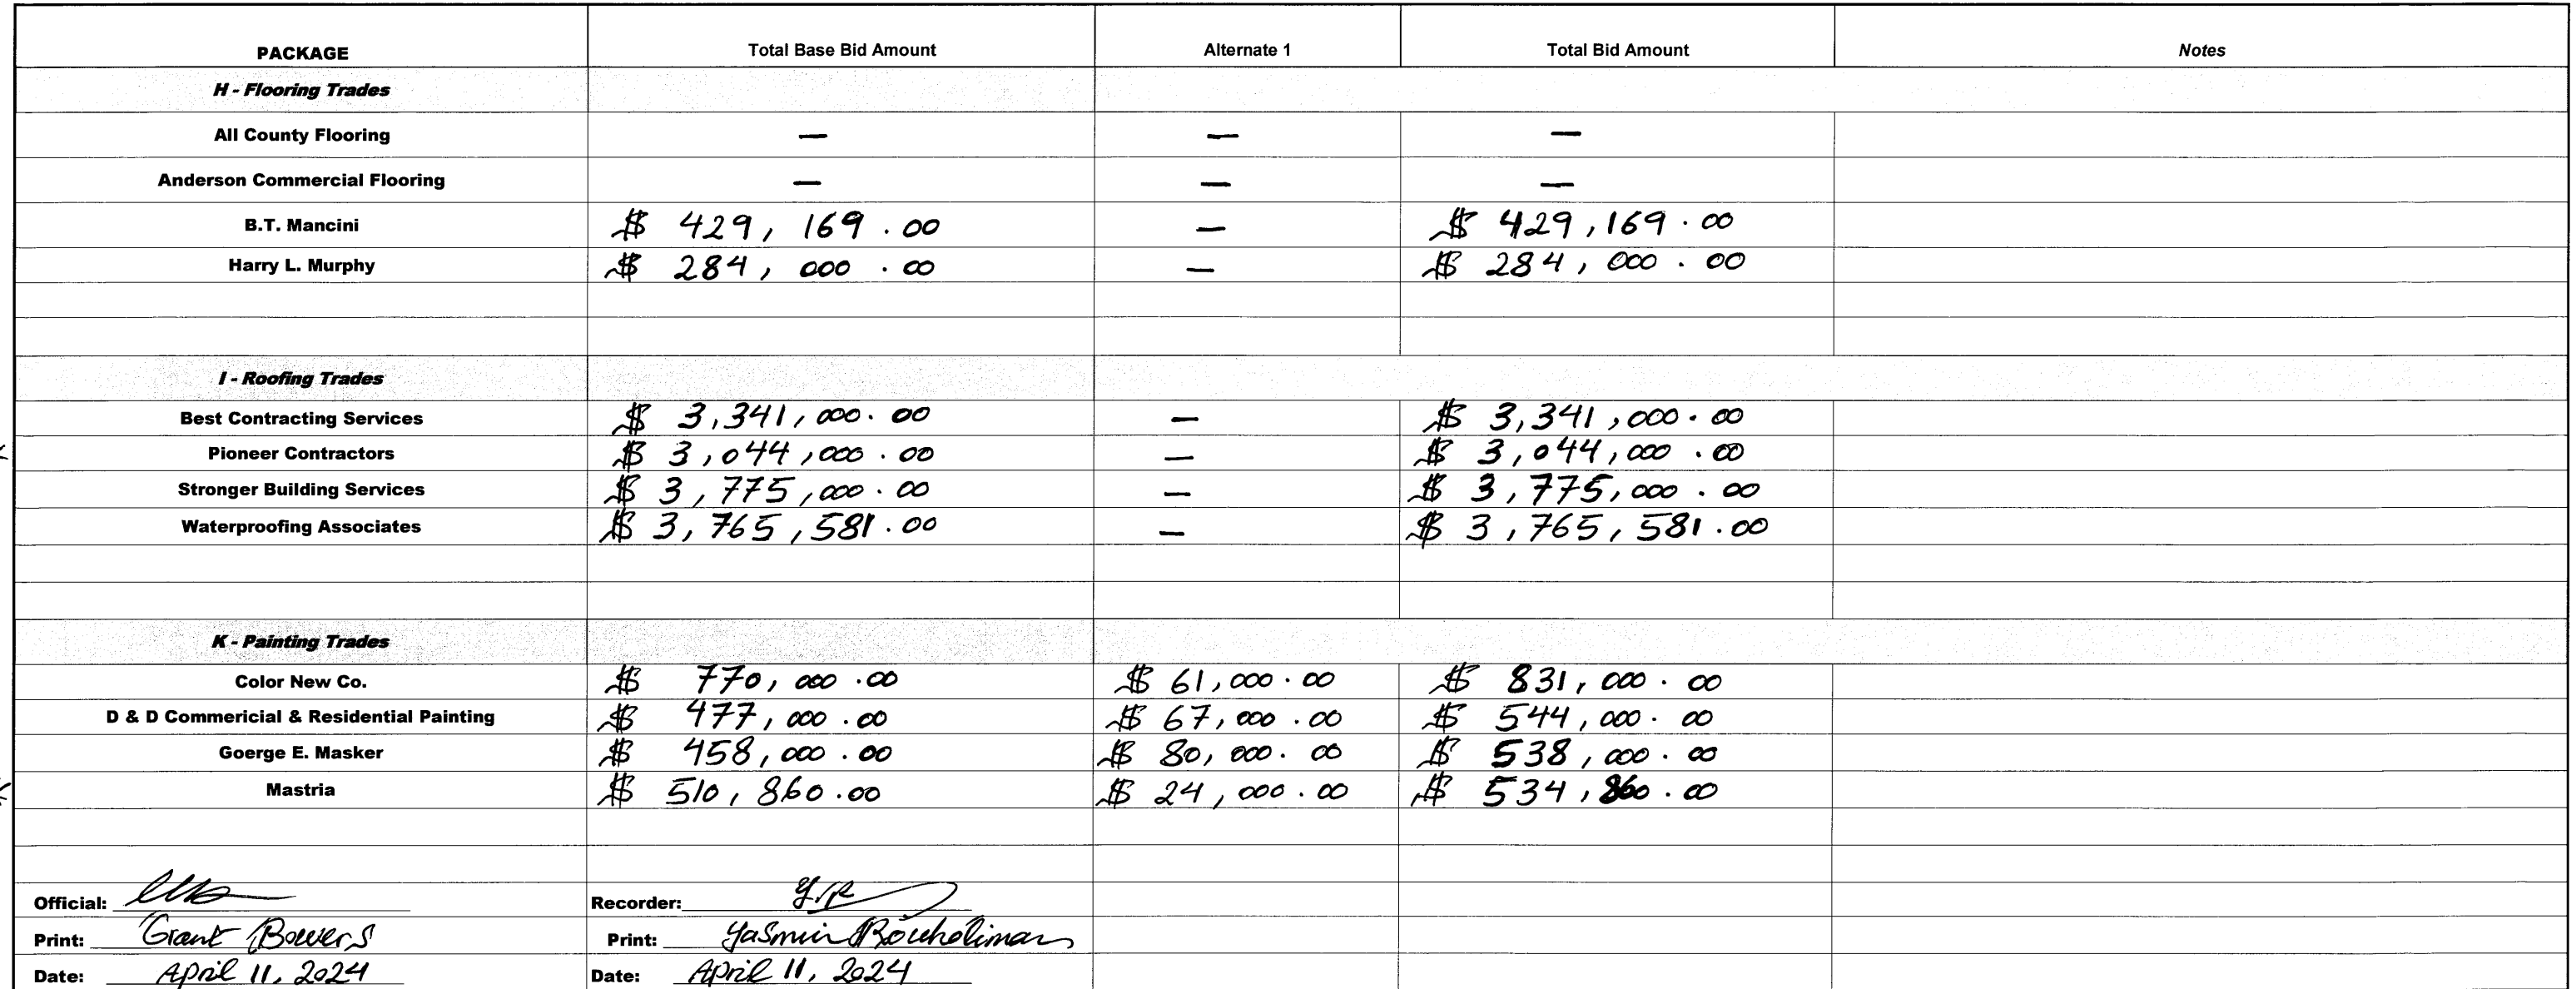 PACKAGE Total Base Bid Amount Alternate 1 Total Bid Amount Notes
H - Flooring Trades
All County Flooring — — —
Anderson Commercial Flooring — — —
B.T. Mancini $ 429,169.00 — $ 429,169.00
Harry L. Murphy $ 284,000.00 — $ 284,000.00
I - Roofing Trades
Best Contracting Services $ 3,341,000.00 — $ 3,341,000.00
Pioneer Contractors $ 3,044,000.00 — $ 3,044,000.00
Stronger Building Services $ 3,775,000.00 — $ 3,775,000.00
Waterproofing Associates $ 3,765,581.00 — $ 3,765,581.00
K - Painting Trades
Color New Co. $ 770,000.00 $ 61,000.00 $ 831,000.00
D & D Commericial & Residential Painting $ 477,000.00 $ 67,000.00 $ 544,000.00
Goerge E. Masker $ 458,000.00 $ 80,000.00 $ 538,000.00
Mastria $ 510,860.00 $ 24,000.00 $ 534,860.00
Official: Recorder:
Print: Grant Bowers Print: Yasmin
Date: April 11, 2024 Date: April 11, 2024